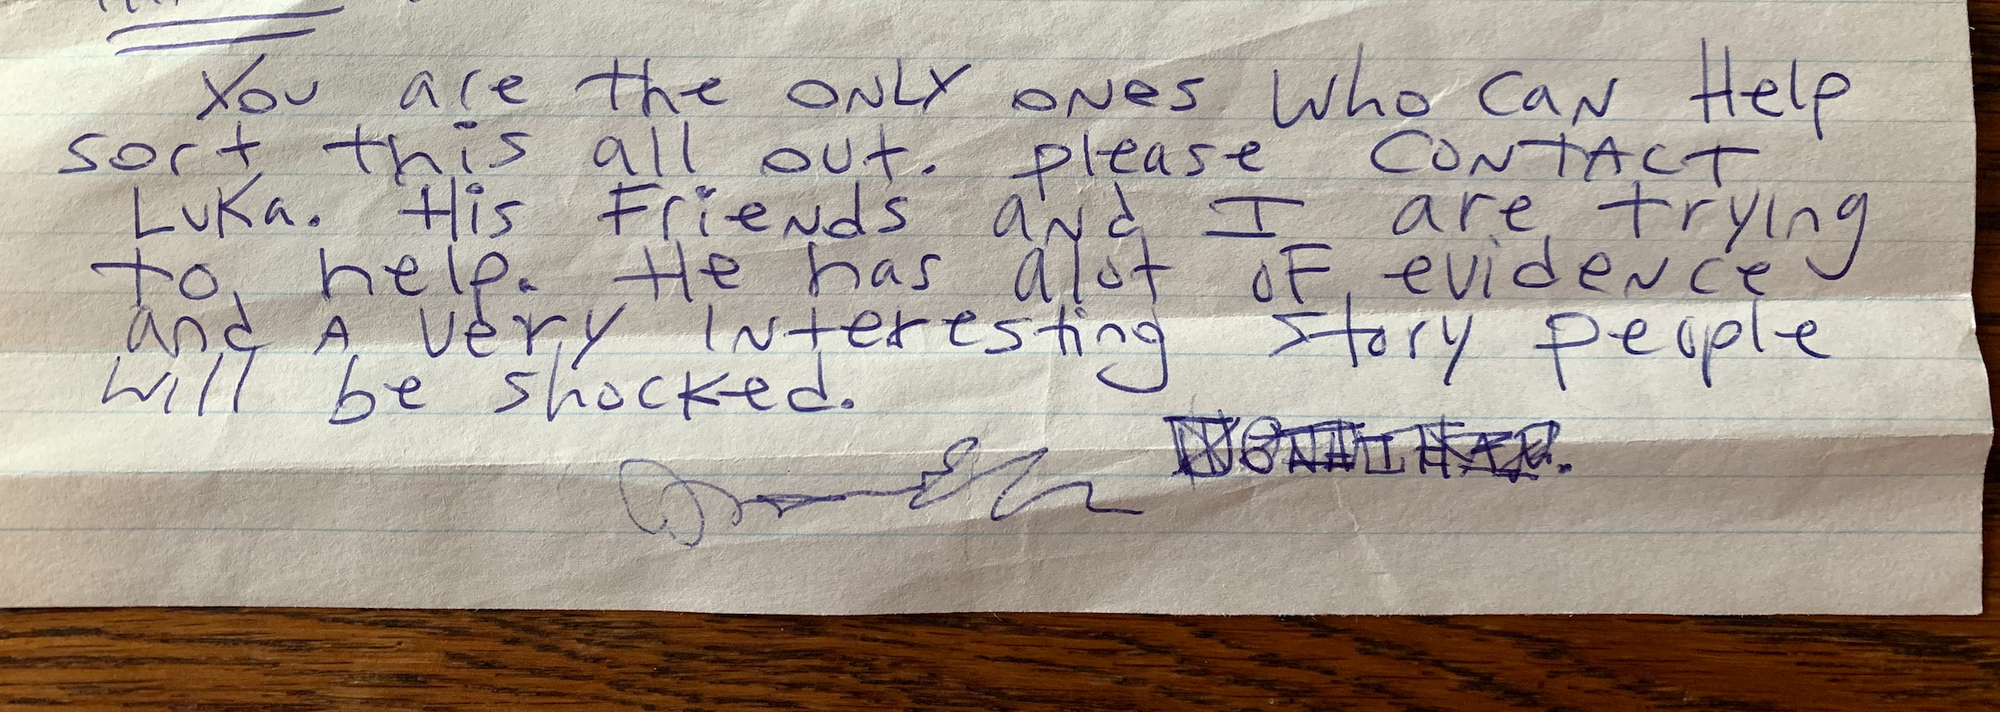 You are the ONLY ones who can Help
sort this all out. please CONTACT
Luka. His Friends and I are trying
to help. He has alot of evidence
and A very Interesting story people
will be shocked.